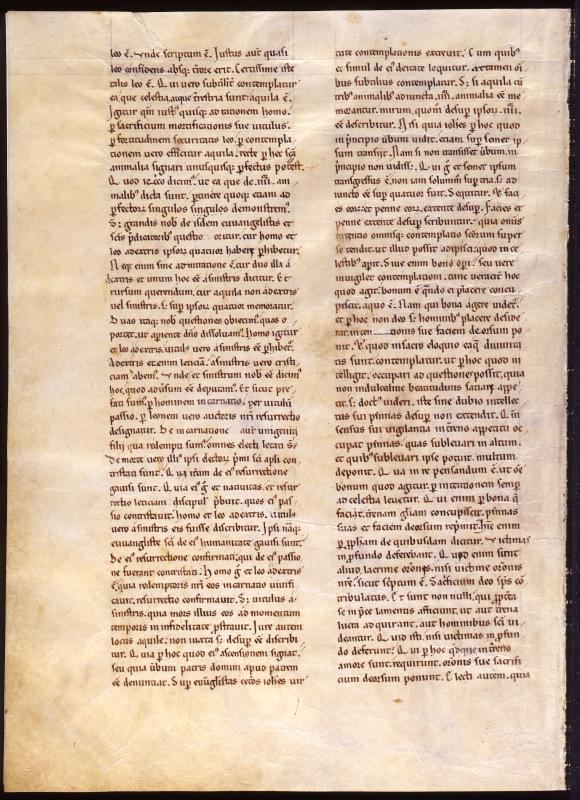 leo ē. Vnde scriptum ē. Iustus aut̄ quasi
leo confidens absq; t̄rore erit. Certissime iste
talis leo ē. Qui uero subtilit̄ contemplatur
ea que celestia, atque et̄na sunt: aquila ē.
Igitur qm̄ iust' quisq; ad rationem homo.
p sacrificium mortificationis sue uitulus.
p fortitudinem securitatis leo. p contempla
tionem uero efficitur aquila. recte p hec scā
animalia signari unusquisq; pfectus potest.
Quod iccirco dicim', ut ea que de .iiii. ani
malib; dicta sunt. ptinere quoq; etiam ad
pfector̄ singulos singulos demonstrem'.
S; grandis nob de isdem euuangelistis et
scīs pdicatorib; questio oritur. cur homo et
leo adextris ipsor̄ quatuor habere phibetur.
Neq; enim sine admiratione ē, cur duo illa a
dextris et unum hoc eē asinistris dicitur. Et
rursum querendum, cur aquila non adextris
uel sinistris. s; sup ipsor̄ quatuor memoratur.
Duas itaq; nob questiones obiecim', quas o
portet, ut apiente dn̄o dissoluam'. homo igitur
et leo adextris. uitulus uero asinistris eē phibet'.
Adextris etenim leticiā. asinistris uero tristi
ciam habem'. Vnde et sinistrum nob eē dicim'
hoc, quod aduersum eē deputam'. Et sicut pre
fati sum', p hominem incarnatio. per uitulū
passio. p leonem uero auctoris nr̄i resurrectio
designatur. De incarnatione aut unigeniti
filii qua redempti sum', omnes electi letati s̄.
de morte uero illi' ipsi doctor̄ p'mi scī apli con
tristati sunt. Qui it̄um de ei' resurrectione
gauisi sunt. Quia ei' g° et natiuitas, et resur
rectio leticiam discipul' p̄buit, quos ei' pas
sio contristauit. homo et leo adextris, uitulus
uero asinistris eis fuisse discribitur. Ipsi nāq;
euuangliste scī de ei' humanitate gauisi sunt.
De ei' resurrectione confirmati. qui de ei' passio
ne fuerant contristati. Homo g° et leo adextris
ē, quia redemptoris nr̄i eos incarnatio uiuifi
cauit. resurrectio confirmauit. S; uitulus a
sinistris, quia mors illius eos ad momentum
temporis in infidelitate pstrauit. Iure autem
locus aquile, non iuxta s; desup eē discribi
tur. Quia p hoc quod ei' ascensionem signat,
seu quia uerbum patris domini apud patrem
eē denuntiat. Sup euuglistas cetos ioh̄es uir
tute contemplationis excreuit. Cum quib'
et simul de ei' deitate loquitur. at tamen oī
bus subtilius contemplatur. S; si aquila cū
trib' animalib' adiuncta .iiii. animalia eē me
morantur. mirum, quom̄ desup ipsor̄ .iiii.
eē describitur. Nisi quia ioh̄es p hoc quod
in principio uidit uerbum. etiam sup semet ip
sum transiit. Nam si non transisset uerbum, in
principio non uidiss'. Qui g° et semet ipsum
transgressus ē, non iam solumm̄ sup tria. s; ad
iuncto eē sup quatuor fuit. Sequitur. Et faci
es eor̄ et penne eor̄, extente desup. Facies et
penne extente desup scribuntur. quia omīs
intentio omnisq; contemplatio scōrum super
se tendit. ut illud possit adipisci, quod in ce
lestib' apit. Siue enim bono opi, seu uere
inuigilet contemplationi. tunc ueracit̄ hoc
quod agit, bonum ē quando ei placere concu
piscit, a quo ē. Nam qui bona agere uidet'.
et p hoc non deo s; hominib' placere deside
rat. inten tionis sue faciem deorsum po
nit. Et quod in sacro eloquio eaq; diuinita
tis sunt, contemplatur, ut p hoc quod in
telligit, occupari ad questiones possit. quia
non indulcedine beatitudinis satiari appe
tit, s; doct' uideri. iste sine dubio intellec
tus sui pinnas desup non extendit. Qui in
sensus sui uigilantia in t̄reno appetitu oc
cupat pinnas, quas subleuari in altum,
et quib' subleuari ipse potuit. multum
deponit. Qua in re pensandum ē, ut oē
bonum quod agitur, p intentionem semp
ad celestia leuetur. Qui enim p bona q̄
facit, t̄renam gliam concupiscit. pinnas
suas et faciem deorsum rep'mit. hinc enim
p pph̄am de quibusdam dicitur. Victimas
in pfundo deferebant. Quid enim sunt
aliud, lacrime orōnis, nisi uictime orōnis
nr̄e. sicut sc̄ptum ē. Sacrificium deo sp̄s cō
tribulatus. Et sunt non nulli, qui ppt̄ea
se in p̄ce lamentis afficiunt. ut aut t̄rena
lucra adquirant. aut hominibus scī ui
deantur. Quid isti, nisi uictimas in pfun
do deferunt. Qui p hoc q̄dque in t̄reno
amore sunt, requirunt. orōnis sue sacrifi
cium deorsum ponunt. Electi autem, quia